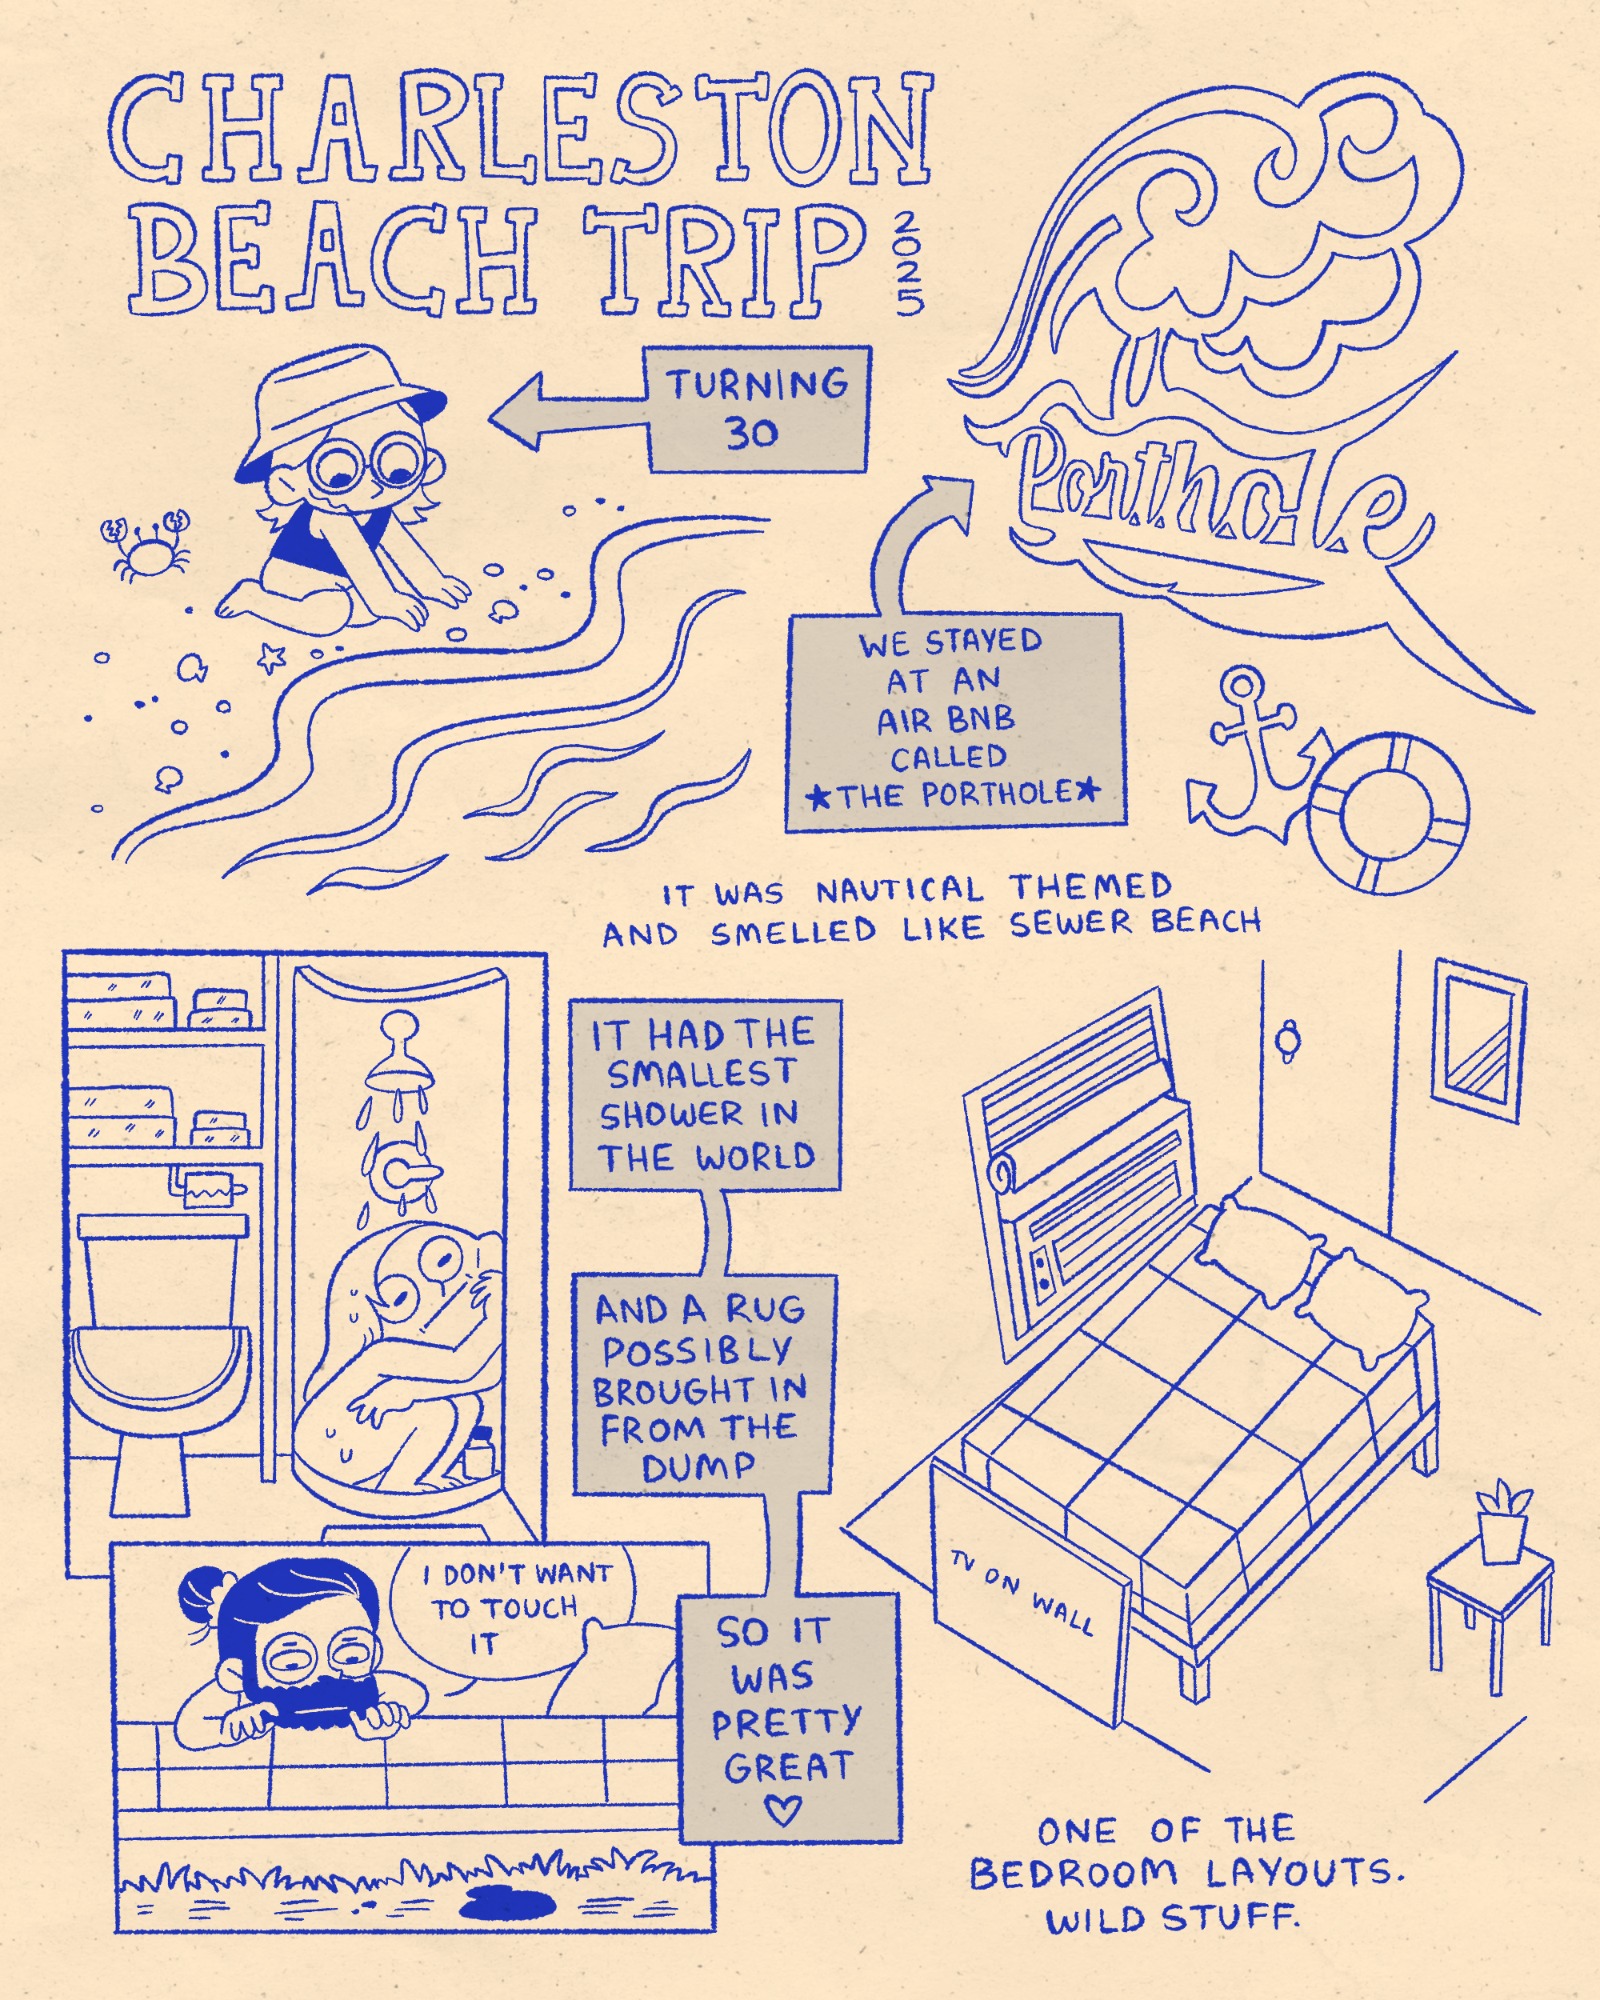 CHARLESTON
BEACH TRIP
2025
TURNING
30
Porthole
WE STAYED
AT AN
AIR BNB
CALLED
★THE PORTHOLE★
IT WAS NAUTICAL THEMED
AND SMELLED LIKE SEWER BEACH
IT HAD THE
SMALLEST
SHOWER IN
THE WORLD
AND A RUG
POSSIBLY
BROUGHT IN
FROM THE
DUMP
I DON'T WANT
TO TOUCH
IT
SO IT
WAS
PRETTY
GREAT
♡
TV ON WALL
ONE OF THE
BEDROOM LAYOUTS.
WILD STUFF.